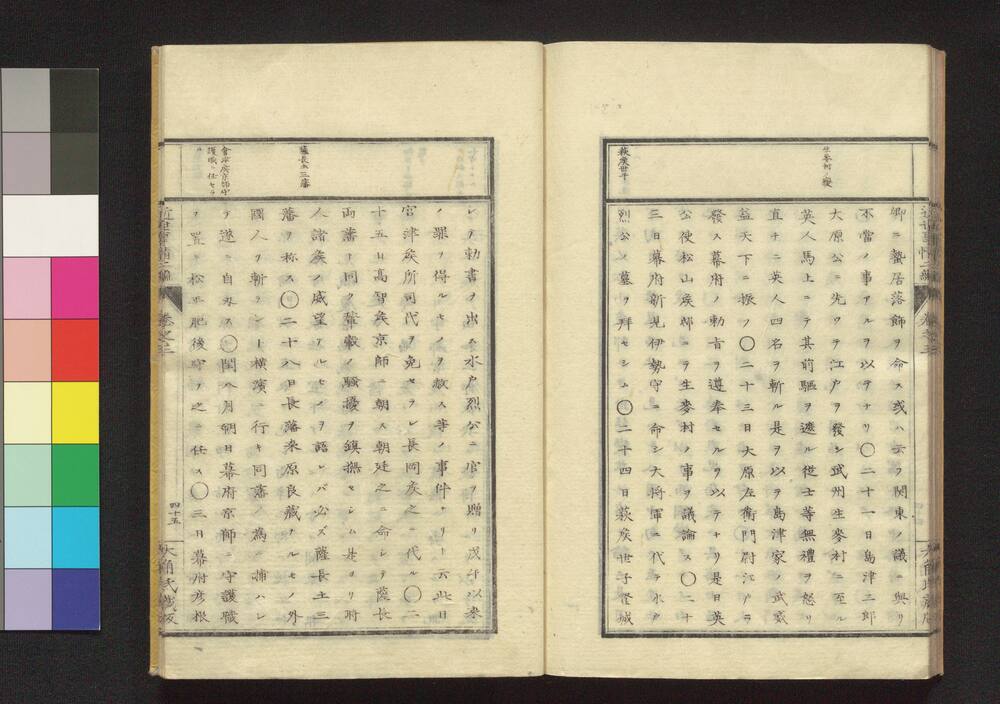 生麥村ノ變
萩矦世子
卿ニ蟄居落飾ヲ命ス或ハ云フ関東ノ議ニ與リ
不當ノ事アルヲ以テナリ〇二十一日島津三郎
大原公ニ先ツテ江戸ヲ發シ武州生麥村ニ至ル
英人馬上ニテ其前驅ヲ遮ル從士等無禮ヲ怒リ
直チニ英人四名ヲ斬ル是ヲ以テ島津家ノ武威
益天下ニ振フ〇二十三日大原左衛門尉江戸ヲ
發ス幕府ノ勅旨ヲ遵奉セルヲ以テナリ是日英
公使松山矦邸ニテ生麥村ノ事ヲ議論ス〇二十
三日幕府新見伊勢守ニ命シ大将軍ニ代テ水戸
烈公ノ墓ヲ拜セシム〇二十四日萩矦世子登城
近世事情二編 巻之三
薩長土三藩
會津矦京師守
護職ニ任セラ
ル
レテ勅書ヲ出ス水戸烈公ニ官ヲ贈リ戊午以来
ノ罪ヲ得ルモノヲ赦ス等ノ事件ナリト云此日
宮津矦所司代ヲ免セラレ長岡矦之ニ代ル〇二
十五日高智矦京師ニ朝ス朝廷之ニ命シテ薩長
両藩ト同ク輦轂ノ騒擾ヲ鎮撫セシム是ヨリ時
人諸矦ノ威望アルモノヲ語レバ必ズ薩長土三
藩ヲ称ス〇二十八日長藩来原良蔵ナルモノ外
國人ヲ斬ラント横濱ニ行キ同藩ノ為ニ捕ハレ
テ遂ニ自刃ス〇閏八月朔日幕府京師ニ守護職
ヲ置キ松平肥後守ヲ之ニ任ス〇三日幕府彦根
近世事情二編 巻之三 四十五 大角氏蔵板